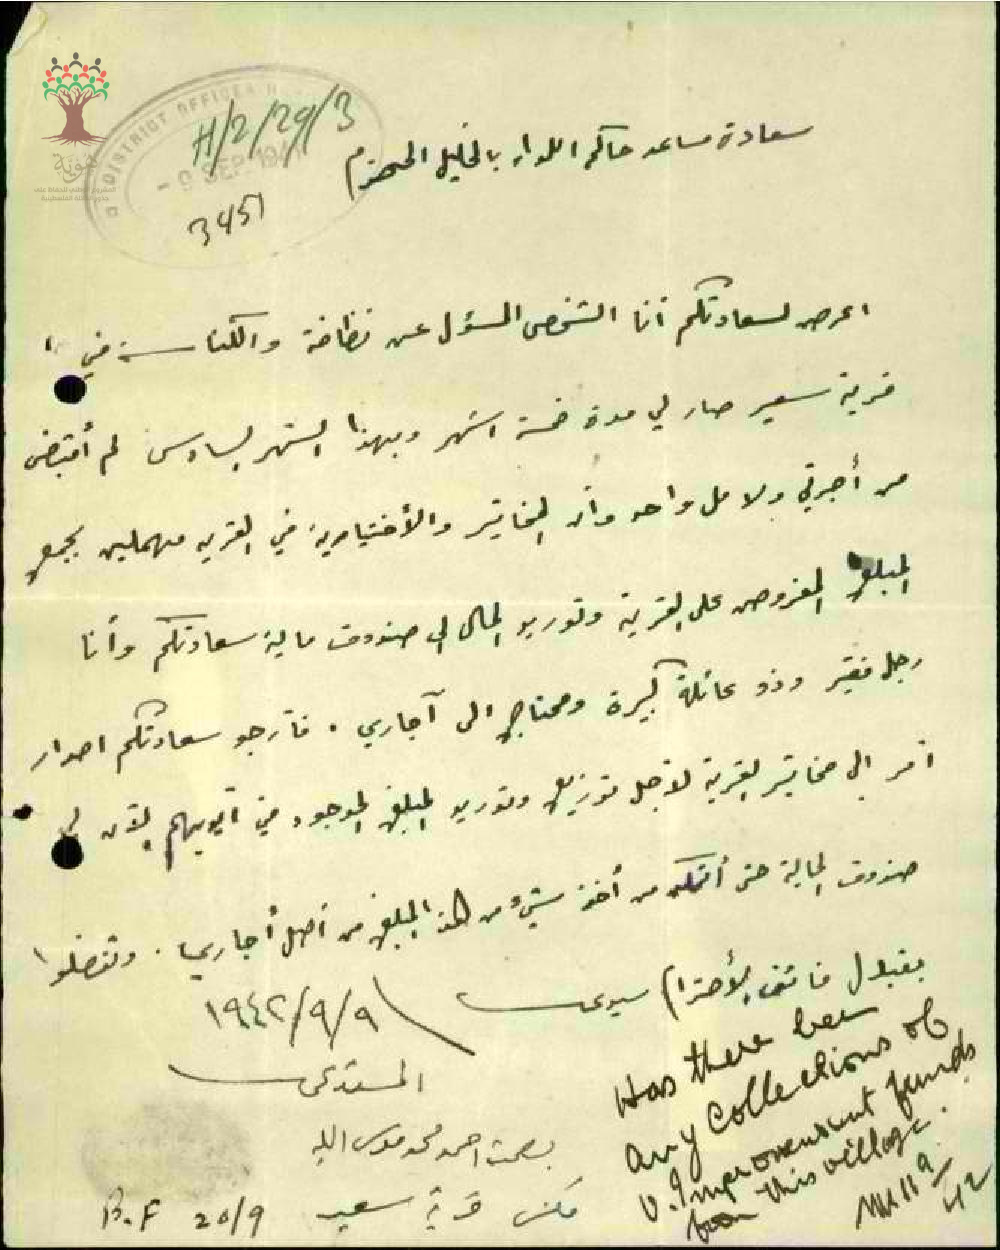 DISTRICT OFFICER
H/2/29/3
- 9 SEP 194
3451
سعادة مساعد حاكم اللواء بالخليل المحترم
اعرض لسعادتكم أنا الشخص المسؤل عن نظافة والكناسة في
قرية سعير صار لي مدة خمسة اشهر وبهذا الشهر السادس لم أقبض
من أجرتي ولا مل واحد وأن المخاتير والأختيارية في القريه مهملين بجمع
المبلغ المفروض على القرية وتوريد المال الى صندوق مالية سعادتكم وأنا
رجل فقير وذو عائلة كبيرة ومحتاج الى آجاري . فأرجو سعادتكم اصدار
أمر الى مخاتير القرية لأجل توزيع وتوريد المبلغ الموجود في أيديهم الآن الى
صندوق المالية حتى أتمكن من أخذ شيء من هذا المبلغ من أصل أجاري . وتفضلوا
بقبول فائق الأحترام سيدي
١٩٤٢/٩/٩
المستدعي
بصمت احمد محمد موسى
كناس قرية سعير
B.F 20/9
Has there been
any collections of
V. Improvement funds
from this village.
11/9/42